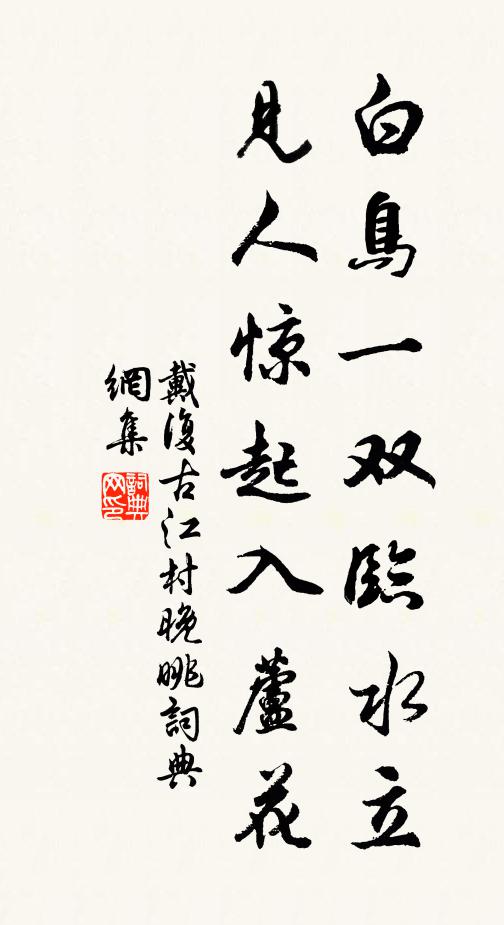 白鳥一双臨水立
見人惊起入蘆花
戴復古江村晚眺詞典
網集
詞典
网印